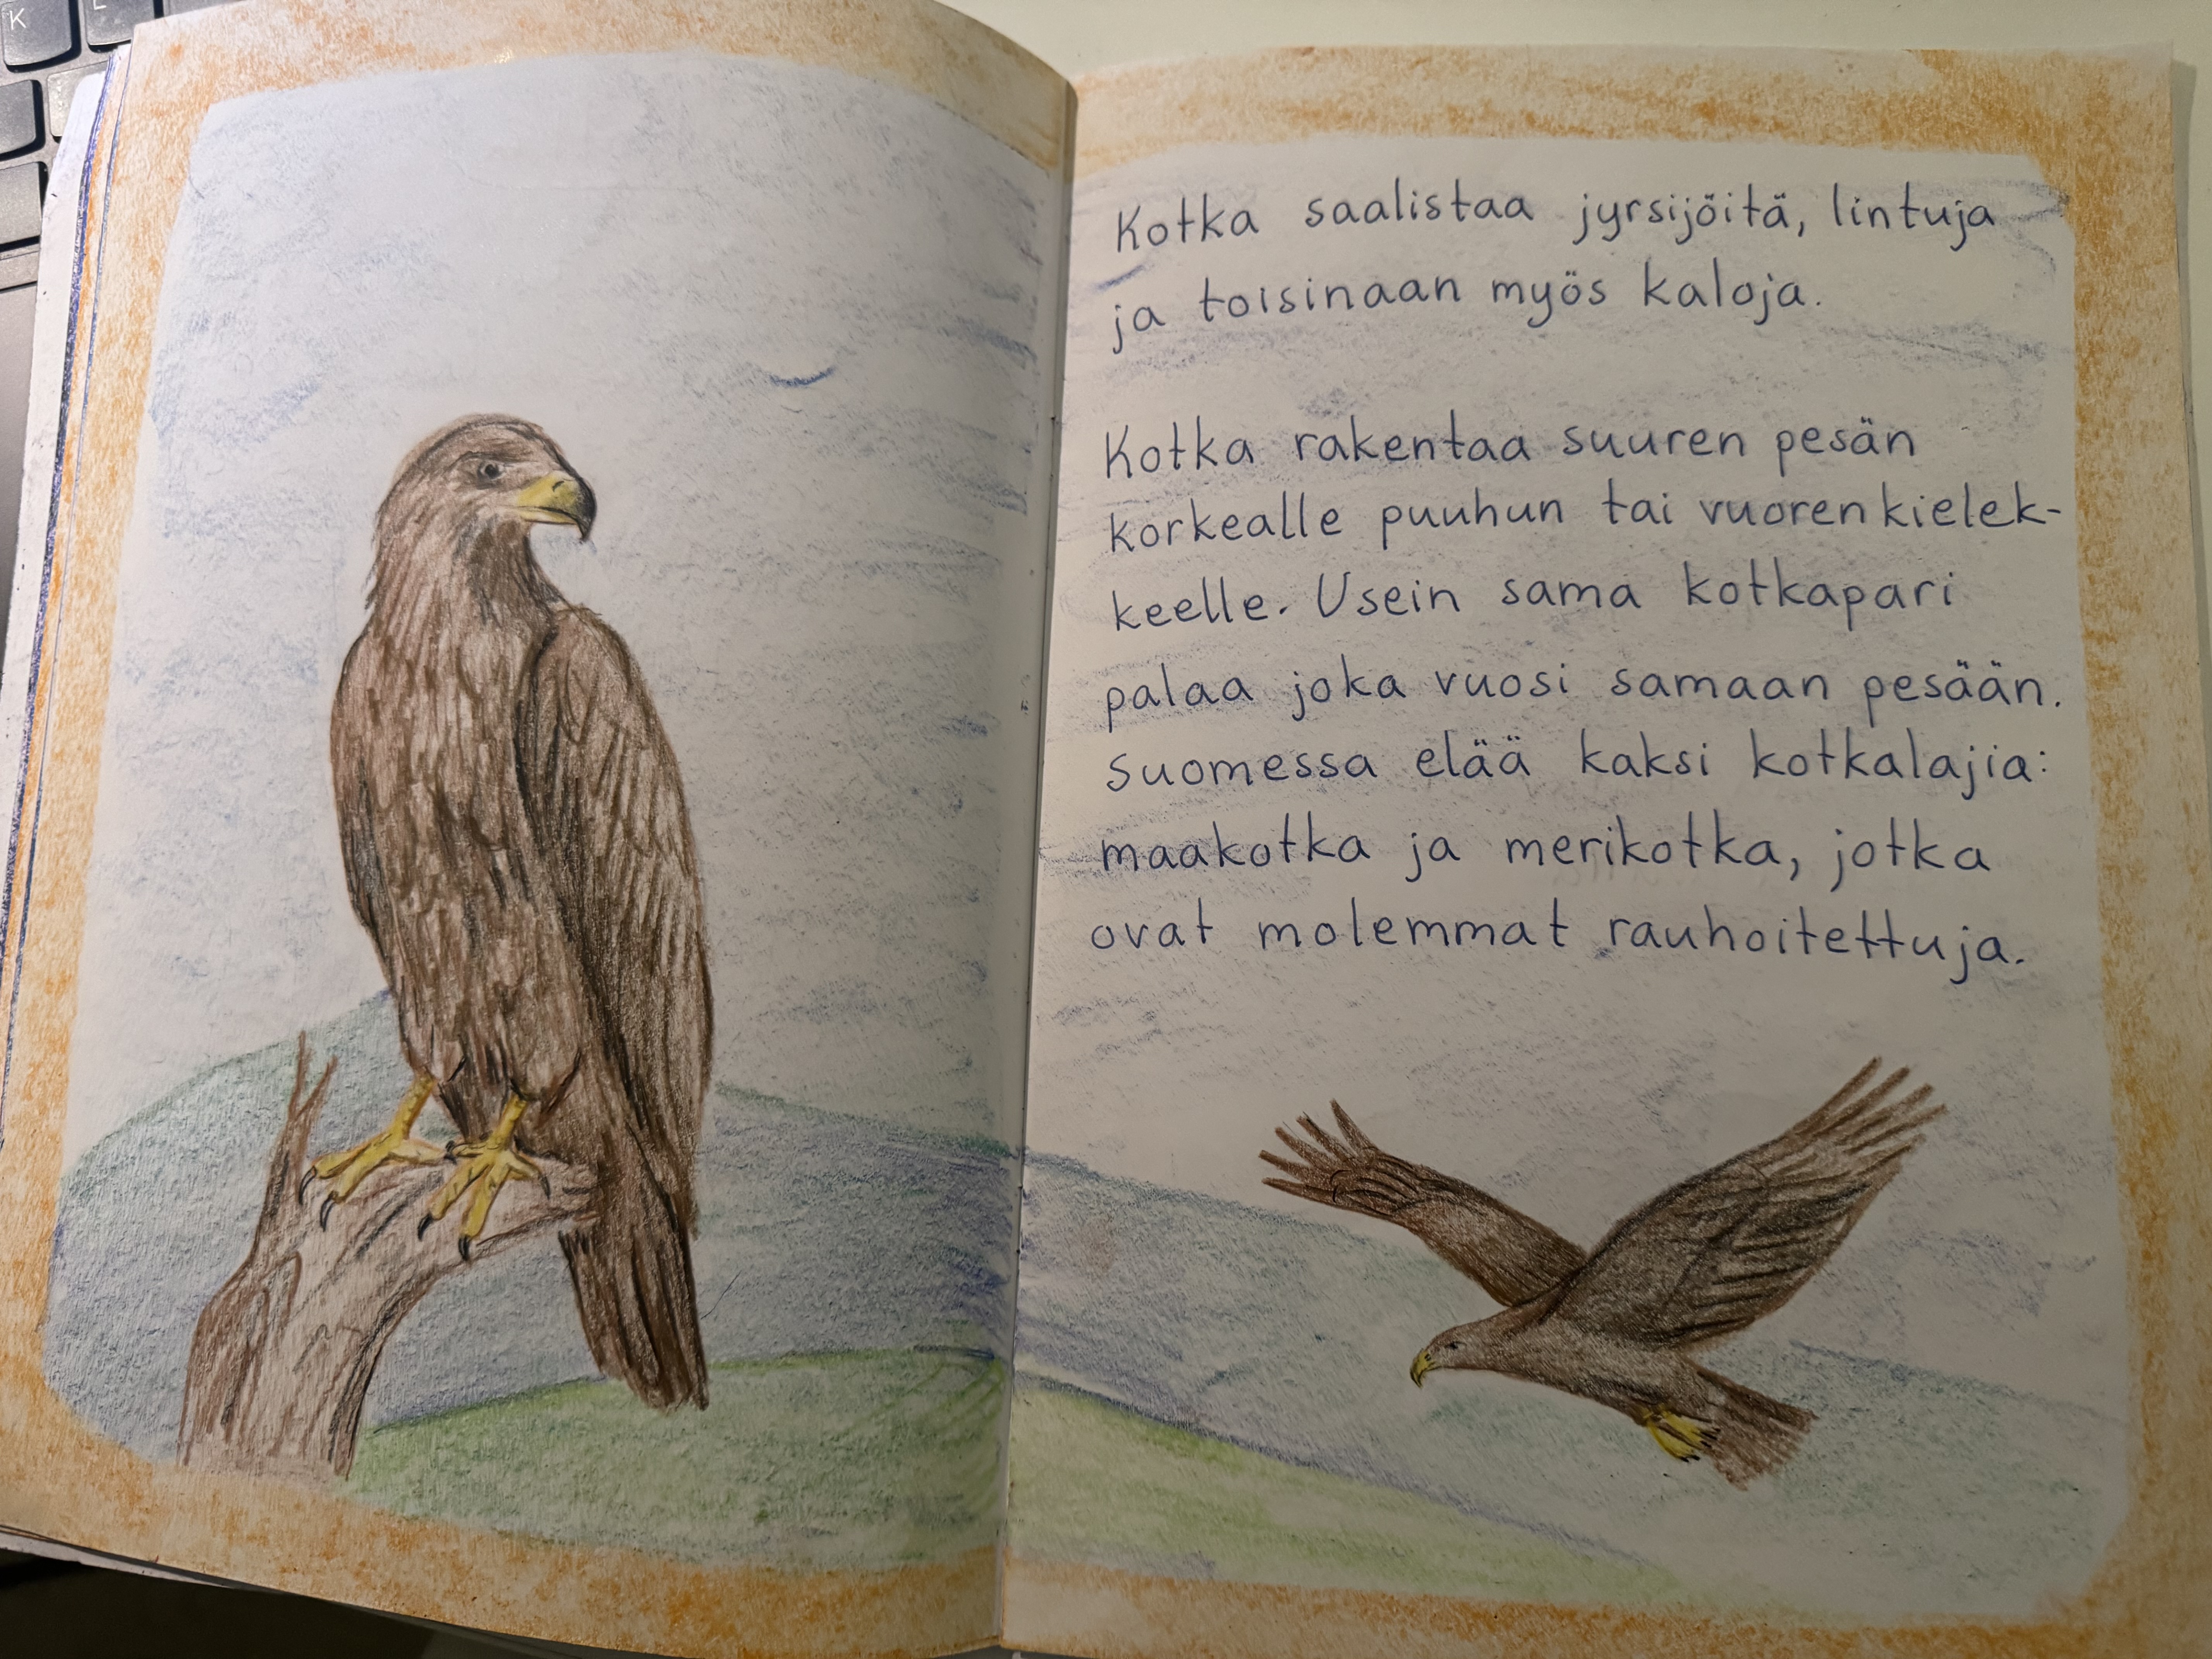 K
L
Kotka saalistaa jyrsijöitä, lintuja
ja toisinaan myös kaloja.
Kotka rakentaa suuren pesän
korkealle puuhun tai vuorenkielek-
keelle. Usein sama kotkapari
palaa joka vuosi samaan pesään.
Suomessa elää kaksi kotkalajia:
maakotka ja merikotka, jotka
ovat molemmat rauhoitettuja.